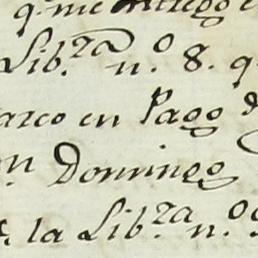 q.e me entregó e
Lib.za n.o 8. q
arco en Pago d
n. Domingo
. la Lib.za n.o 9